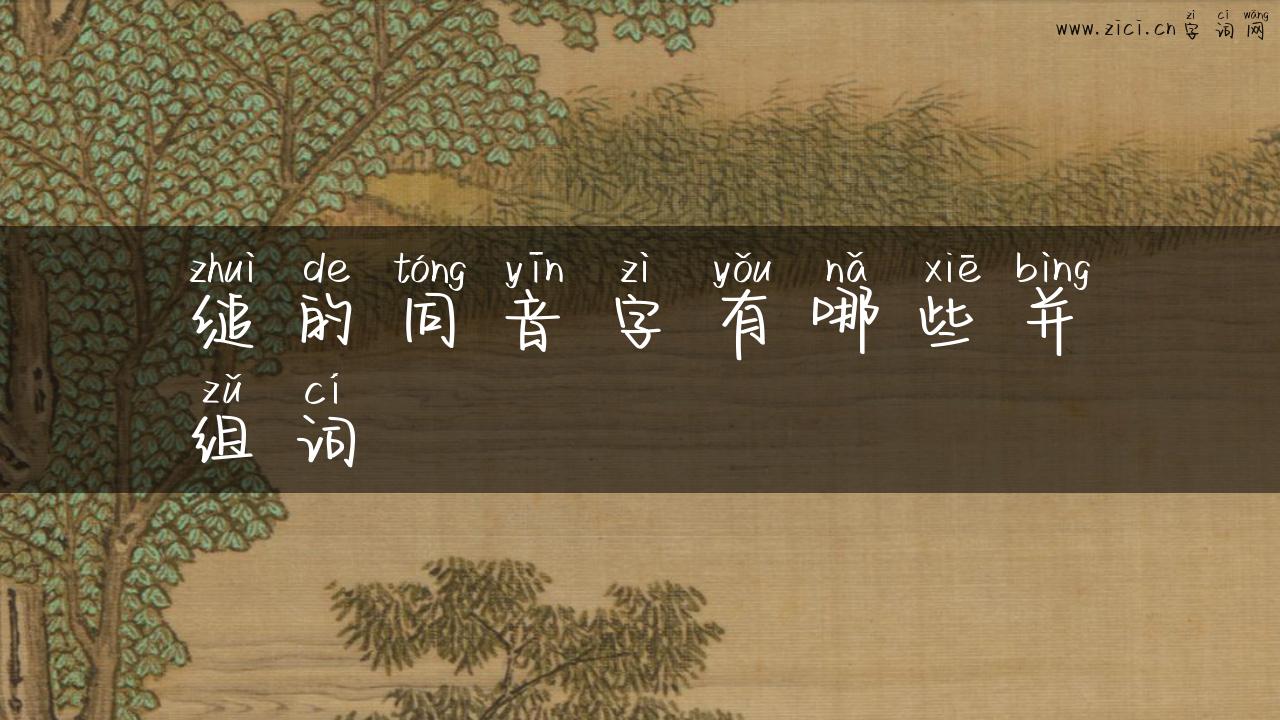 zì cí wǎng
www.zici.cn字词网
zhuì de tóng yīn zì yǒu nǎ xiē bìng
缒的同音字有哪些并
zǔ cí
组词